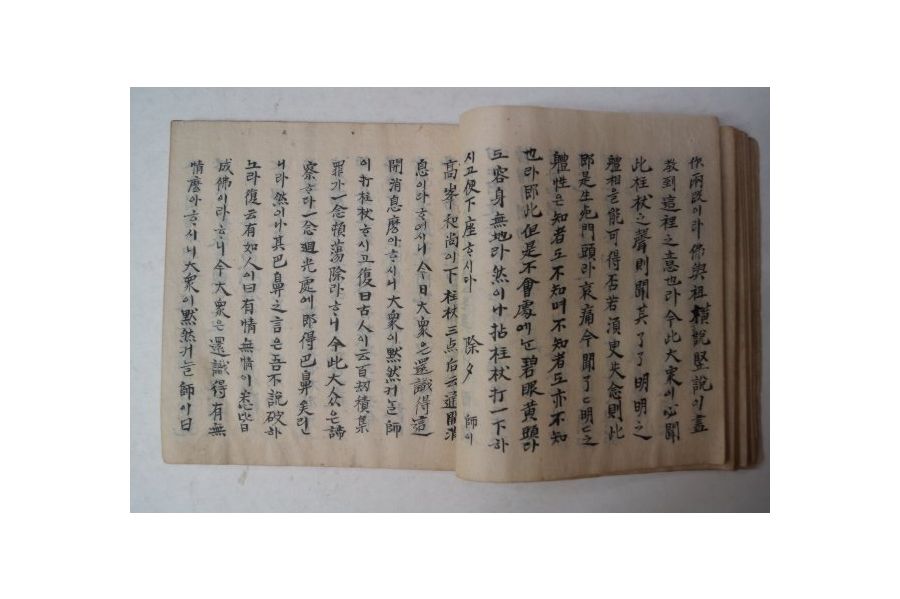 你兩段이라 佛與祖橫說竪說이盡
敎到這裡之意也라 今此大衆이 必聞
此柱杖之聲則聞其了了明明之
軆相을能可得否若須更失念則此
即是生死門頭라 哀痛今聞了〻明〻之
軆性은知者도不知며不知者도亦不知
也라 即此但是不會處에는碧眼黃頭라
도容身無地라 然이나拈柱杖打一下하
시고便下座ᄒᆞ시다 除夕 師이
高峯和尙이下柱杖三点后云通開消
息이라ᄒᆞ여시니今日大衆은還識得這
開消息麽아ᄒᆞ시니大衆이默然커늘師
이打柱杖ᄒᆞ시고復曰古人이云百劫積集
罪가一念頓蕩除라ᄒᆞ니今此大众은諦
察ᄒᆞ라一念廻光處에即得巴鼻矣리
니라然이나其巴鼻之言은吾不說破하
노라復云有如人이曰有情無情이悉皆
成佛이라ᄒᆞ니今大衆은還識得有無
情麽아ᄒᆞ시니大衆이默然커늘師이曰